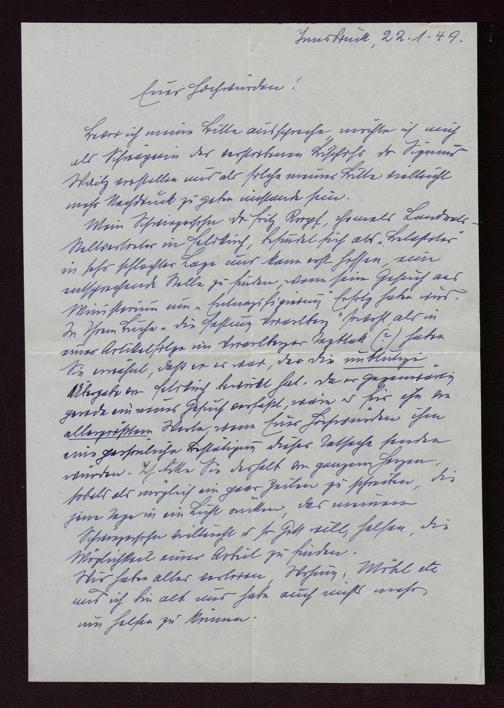 Innsbruck, 22.1.49.
Euer Hochwürden!
Bevor ich meine Bitte ausspreche, möchte ich mich
als Schwägerin des verstorbenen Bischofs Dr Sigmund
Waitz vorstellen und als solche meiner Bitte vielleicht
mehr Nachdruck zu geben imstande sein.
Mein Schwiegersohn Dr Fritz, ehemals Landrats-
Stellvertreter in Feldkirch, befindet sich als "Belasteter"
in sehr schlechter Lage und kann erst hoffen, eine
entsprechende Stelle zu finden, wenn sein Gesuch ans
Ministerium um "Entnazifizierung" Erfolg haben wird.
In Ihrem Buche "die Festung Vorarlberg" sowohl als in
einer Artikelfolge im Vorarlberger (?) haben
Sie erwähnt, daß er es war, der die unblutige
Übergabe von Feldkirch bewirkt hat. Da er gegenwärtig
gerade ein neues Gesuch verfaßt, wäre es für ihn von
allergrößtem Werte, wenn Euer Hochwürden ihm
eine persönliche Bestätigung dieser Tatsache senden
würden. Ich bitte Sie deshalb von ganzem Herzen,
sobald als möglich ein paar Zeilen zu schreiben, die
jene Tage in ein Licht rücken, das meinem
Schwiegersohn vielleicht, so Gott will, helfen, die
Möglichkeit einer Arbeit zu finden.
Wir haben alles verloren, Wohnung, Möbel etc
und ich bin alt und habe auch nichts mehr,
um helfen zu können.